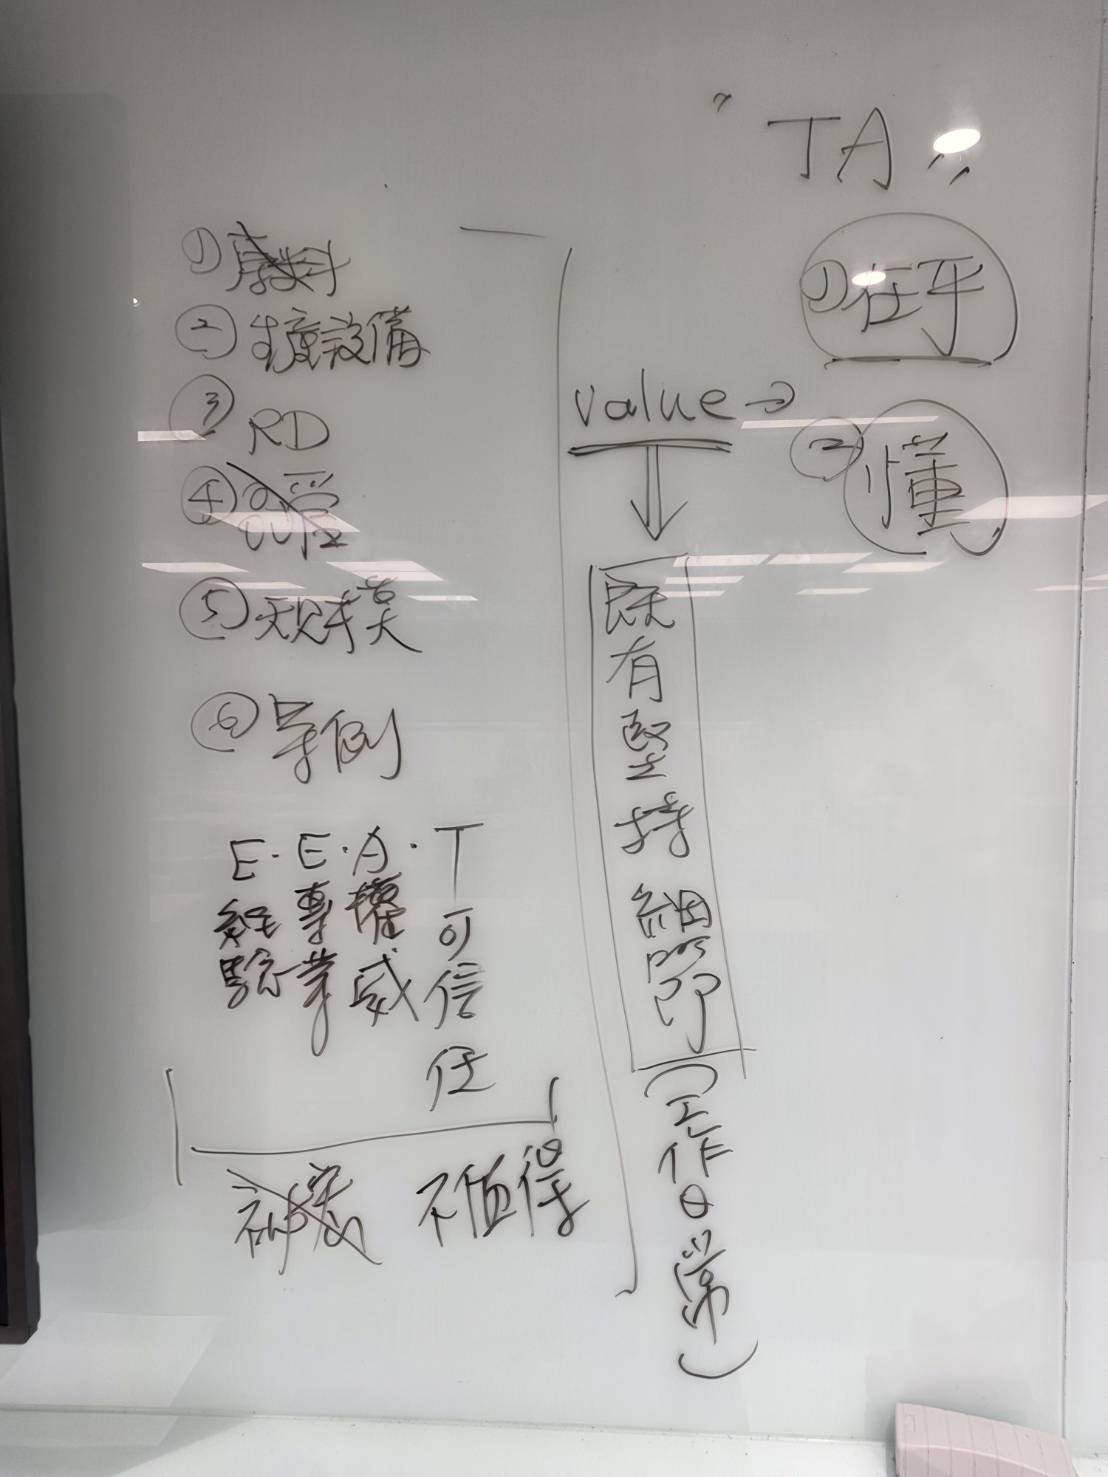 "TA"
①原料
②生產設備
③RD
④品管
⑤規模
⑥案例
E.E.A.T
經驗
專業
權威
可信任
神密
不值得
value→
①在乎
②懂
既有堅持細節
(工作日常)